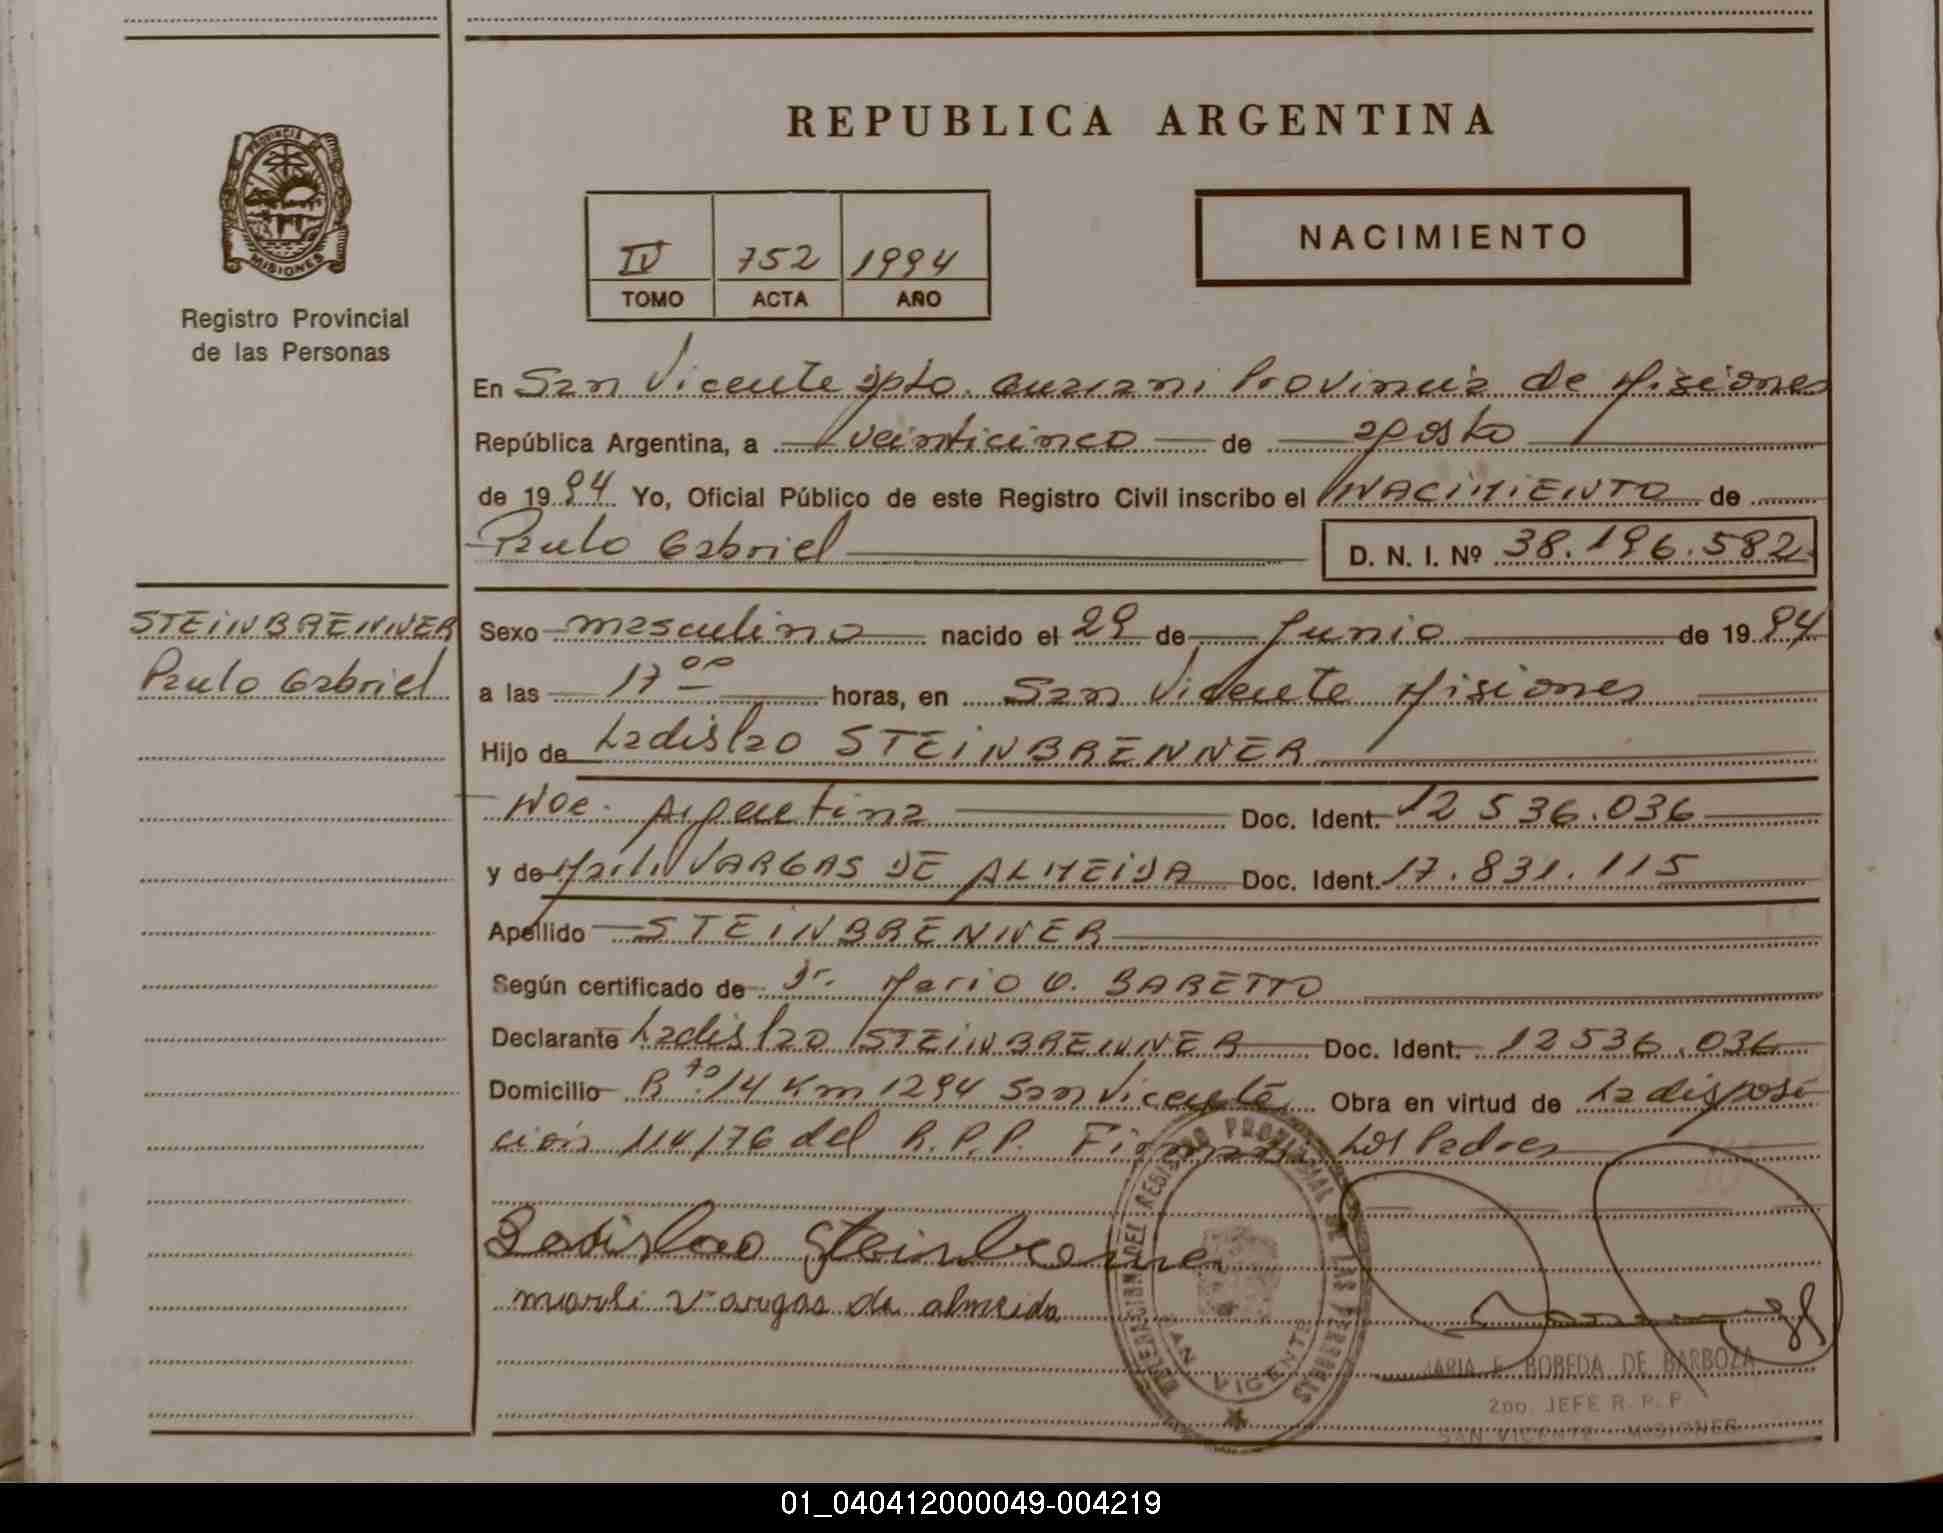 REPUBLICA ARGENTINA
PROVINCIA DE
MISIONES
Registro Provincial
de las Personas
IV 752 1994
TOMO ACTA AÑO
NACIMIENTO
En San Vicente Dpto. Guarani Provincia de Misiones
República Argentina, a veinticinco de agosto
de 1994 Yo, Oficial Público de este Registro Civil inscribo el NACIMIENTO de
Paulo Gabriel D. N. I. Nº 38.196.582
STEINBRENNER
Paulo Gabriel
Sexo masculino nacido el 29 de Junio de 1994
a las 17 00 horas, en San Vicente Misiones
Hijo de Ladislao STEINBRENNER
Nac. Argentina Doc. Ident. 12 536.036
y de Marli VARGAS DE ALMEIDA Doc. Ident. 17.831.115
Apellido STEINBRENNER
Según certificado de Dr. Mario O. BARETTO
Declarante Ladislao STEINBRENNER Doc. Ident. 12 536.036
Domicilio R ta. 14 Km 1294 San Vicente Obra en virtud de La disposi
ción 114/76 del R.P.P. Firman Los Padres
Ladislao Steinbrenner
marli vargas de almeida
DELEGACION DEL REGISTRO PROVINCIAL DE LAS PERSONAS
SAN VICENTE
MARIA E. BOBEDA DE BARBOZA
2do. JEFE R. P. P.
SAN VICENTE - MISIONES
01_040412000049-004219